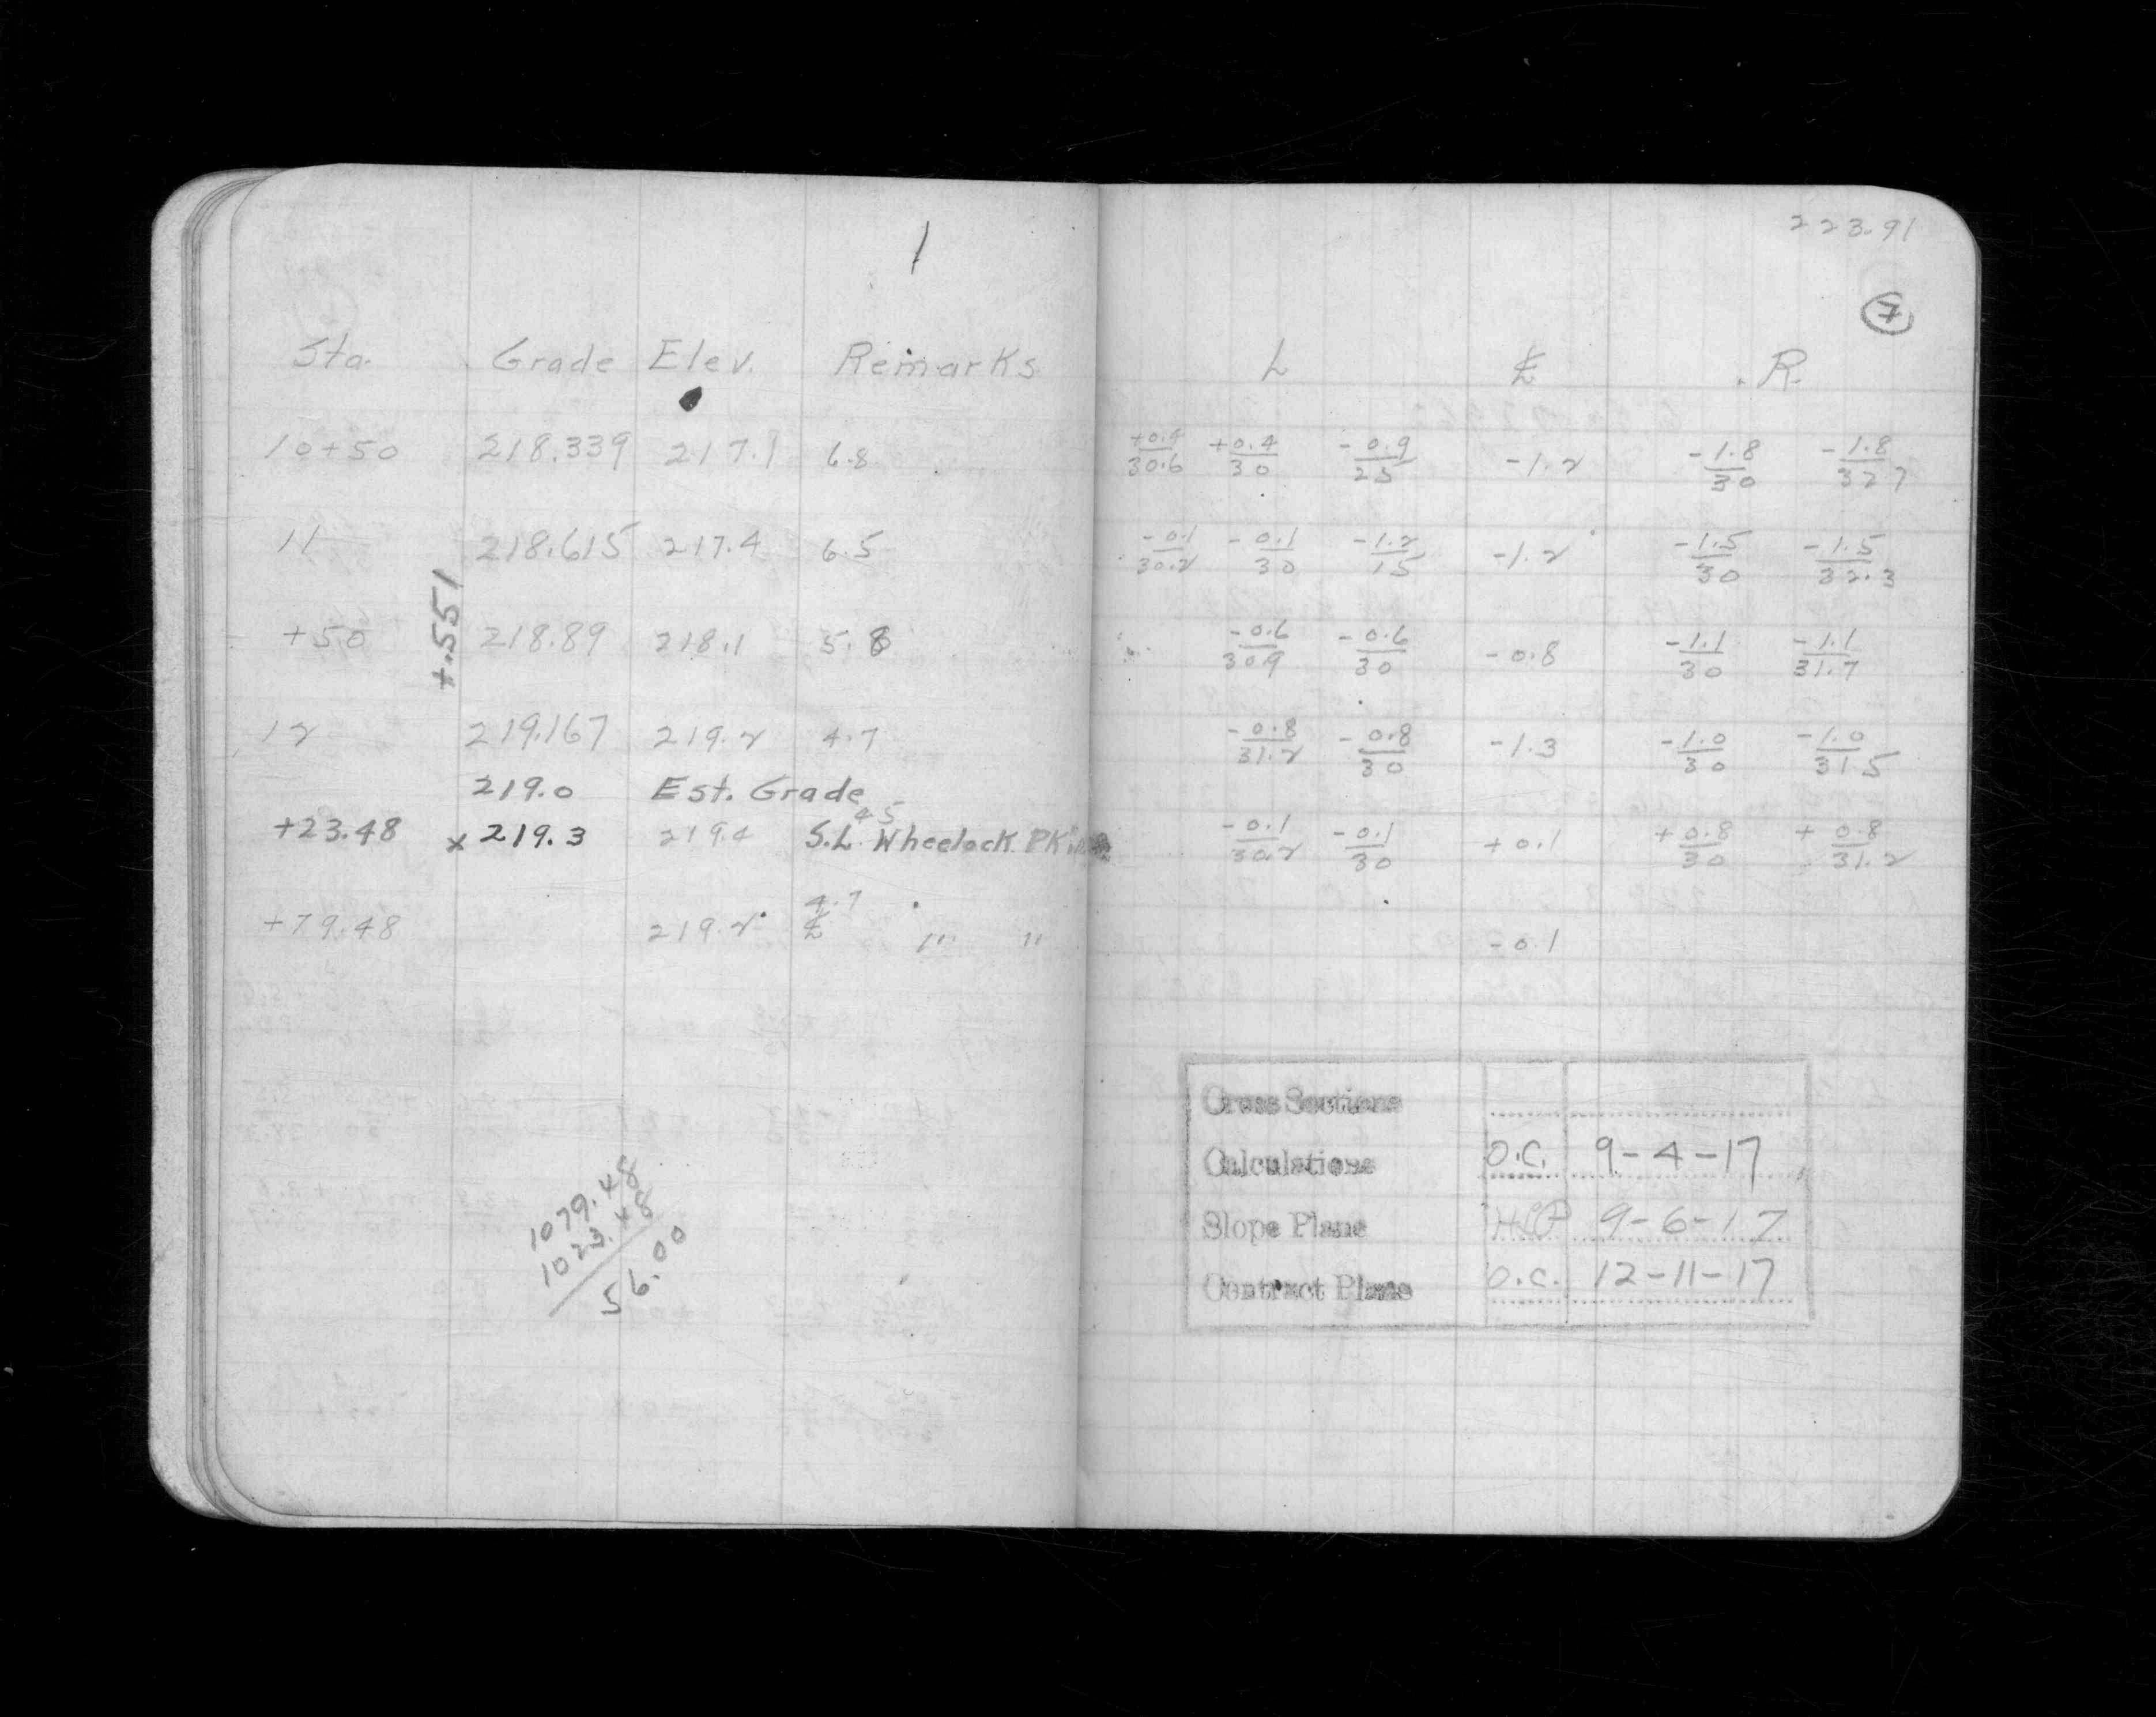 1
Sta. Grade Elev. Remarks
10+50 218.339 217.1 6.8
11 218.615 217.4 6.5
+.551
+50 218.89 218.1 5.8
12 219.167 219.2 4.7
219.0 Est. Grade
4.5
+23.48 x 219.3 219.4 S.L. Wheelock PK
4.7
+79.48 219.2 ℄ " "
1079.48
1023.48
56.00
223.91
7
L ℄ R.
+0.4/30.6 +0.4/30 -0.9/25 -1.2 -1.8/30 -1.8/32.7
-0.1/30.2 -0.1/30 -1.2/15 -1.2 -1.5/30 -1.5/32.3
-0.6/30.9 -0.6/30 -0.8 -1.1/30 -1.1/31.7
-0.8/31.2 -0.8/30 -1.3 -1.0/30 -1.0/31.5
-0.1/30.2 -0.1/30 +0.1 +0.8/30 +0.8/31.2
-0.1
Cross Sections
Calculations O.C. 9-4-17
Slope Plans 9-6-17
Contract Plans O.C. 12-11-17